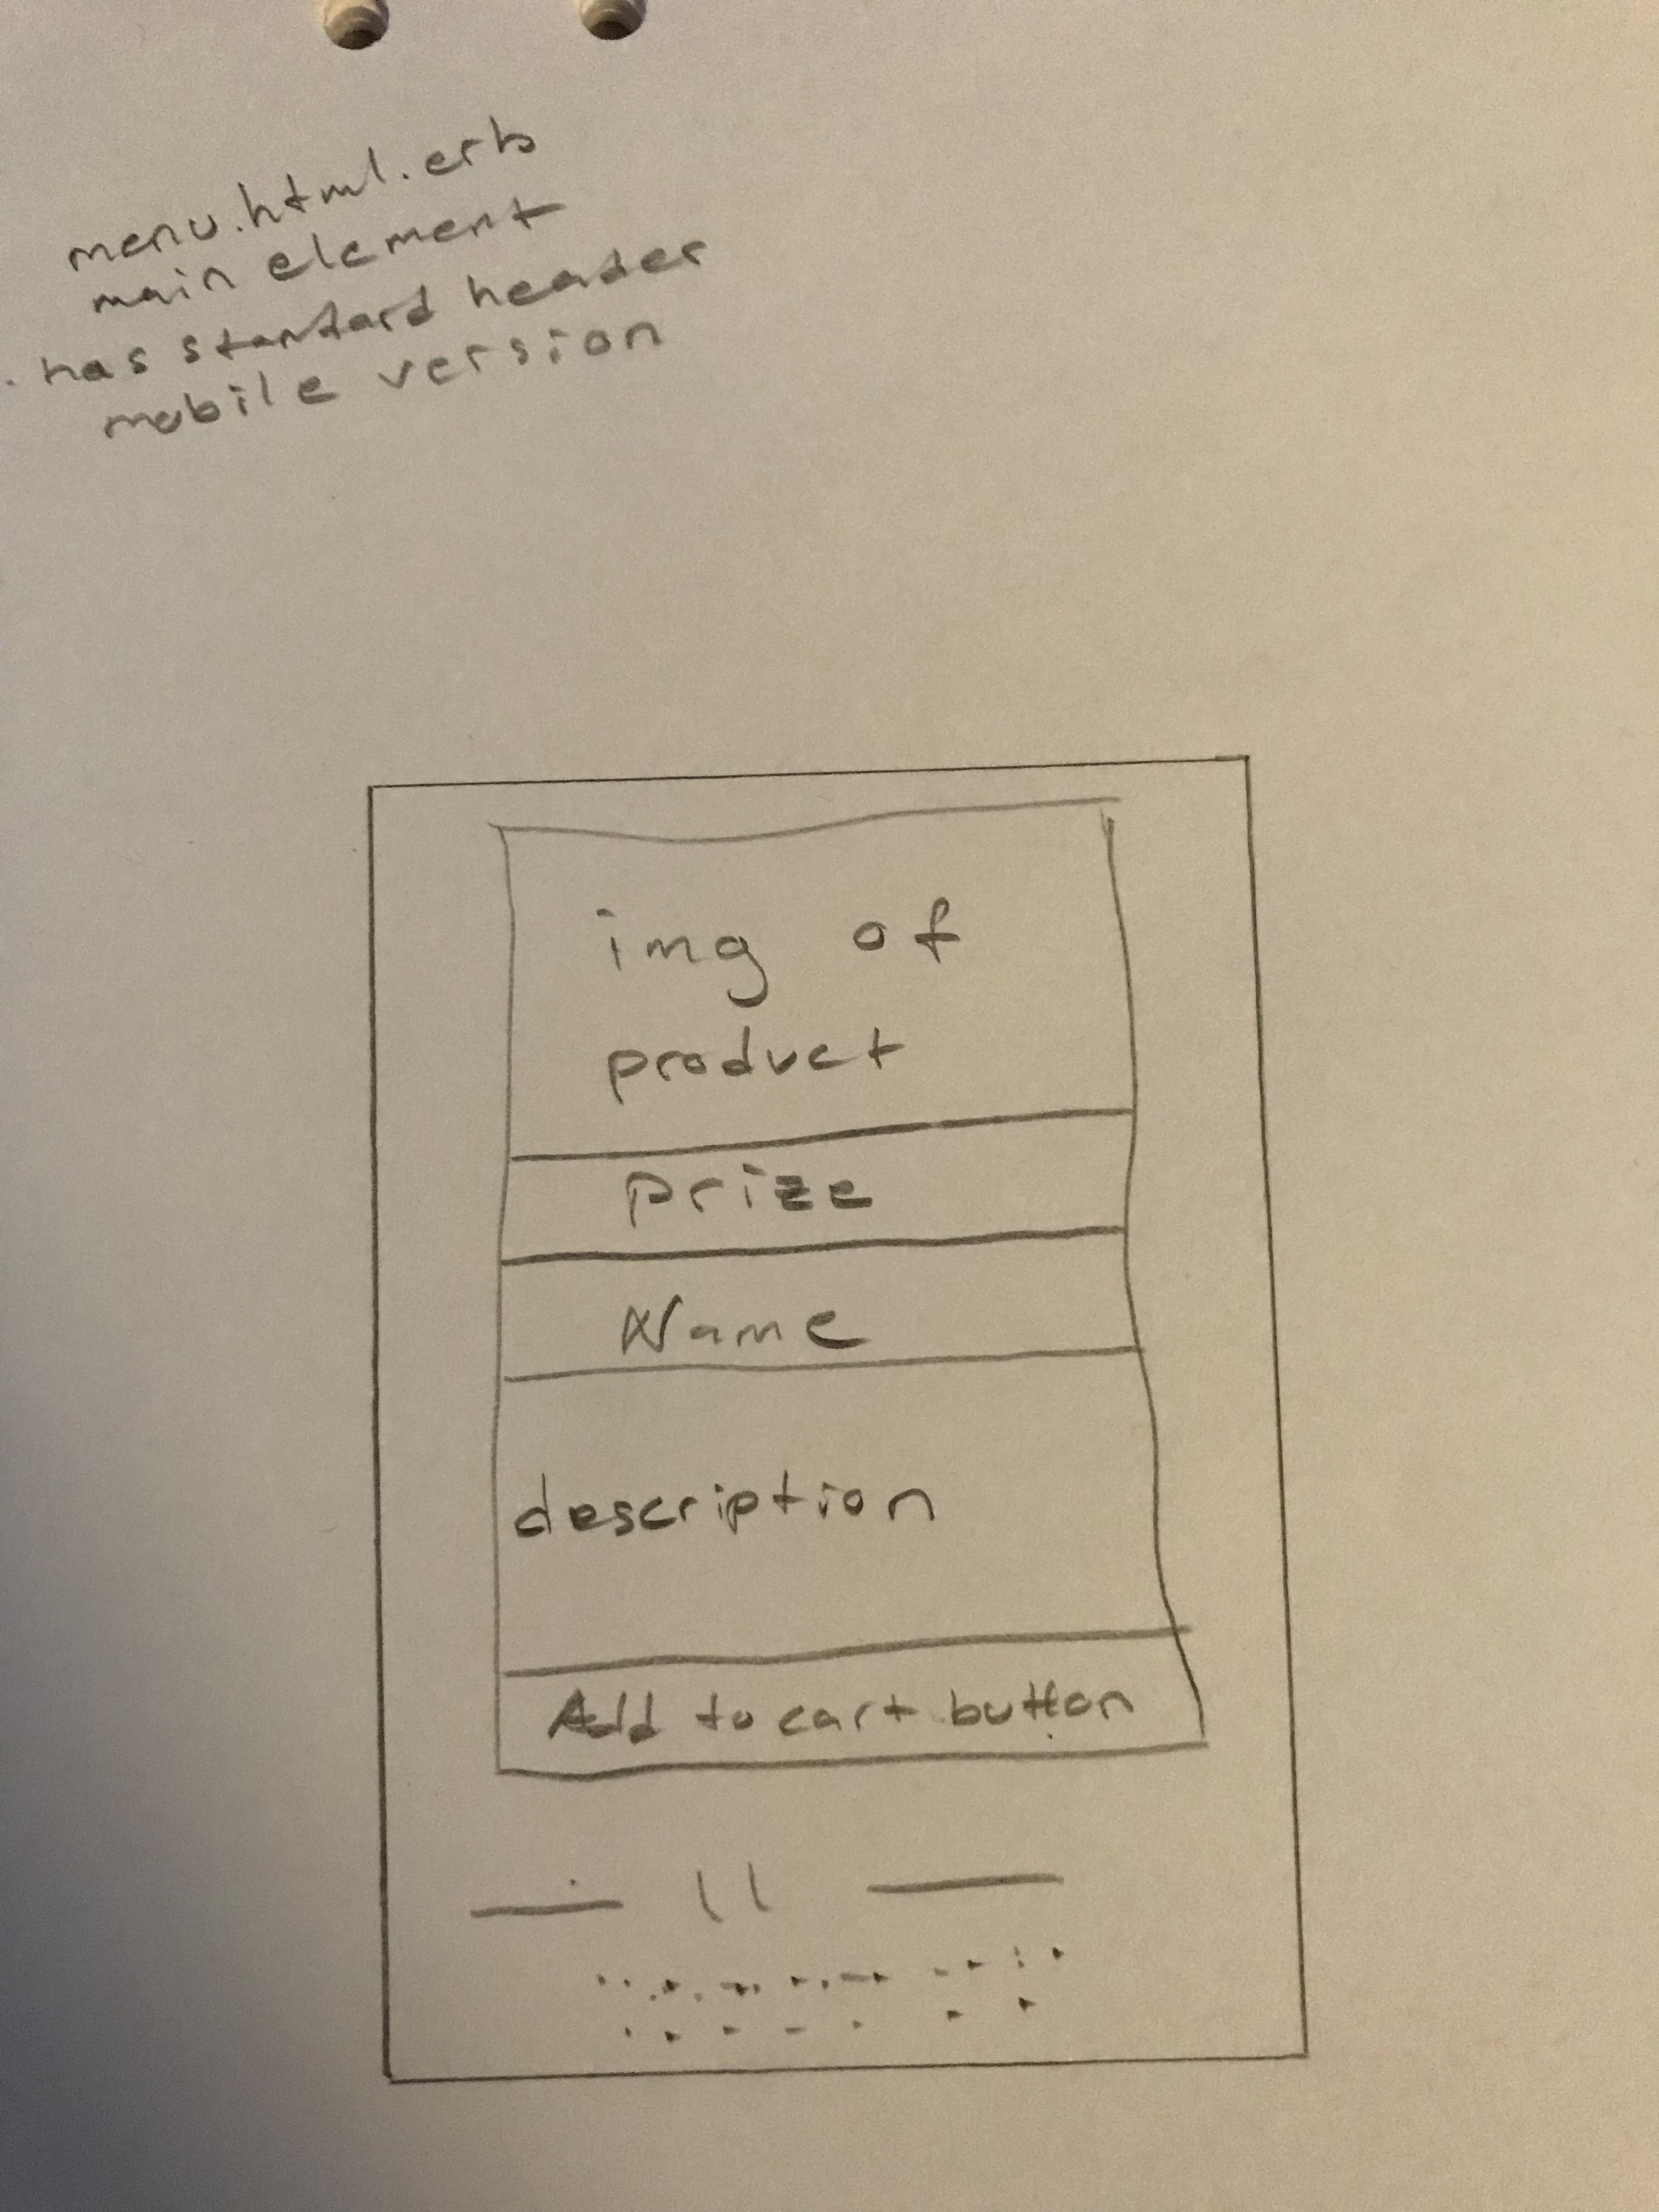 menu.html.erb
main element
has standard header
mobile version
img of
product
prize
Name
description
Add to cart button